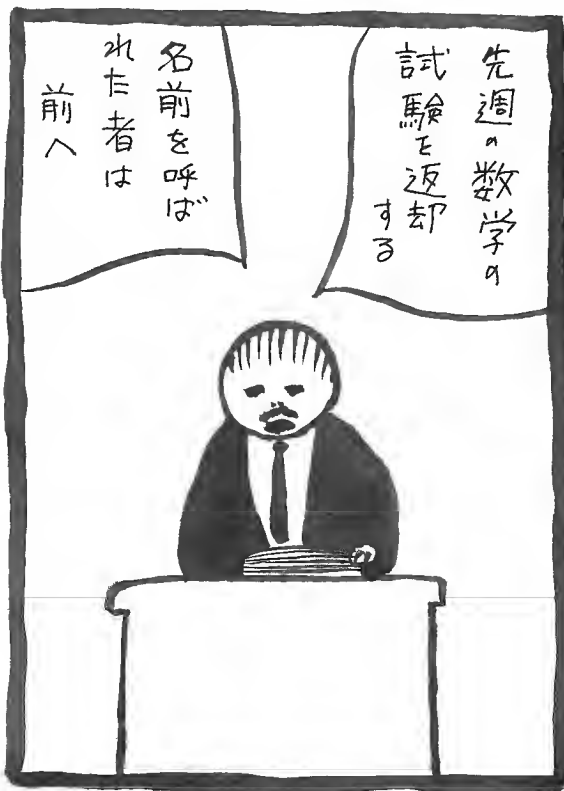 先週の数学の
試験を返却
する
名前を呼ば
れた者は
前へ